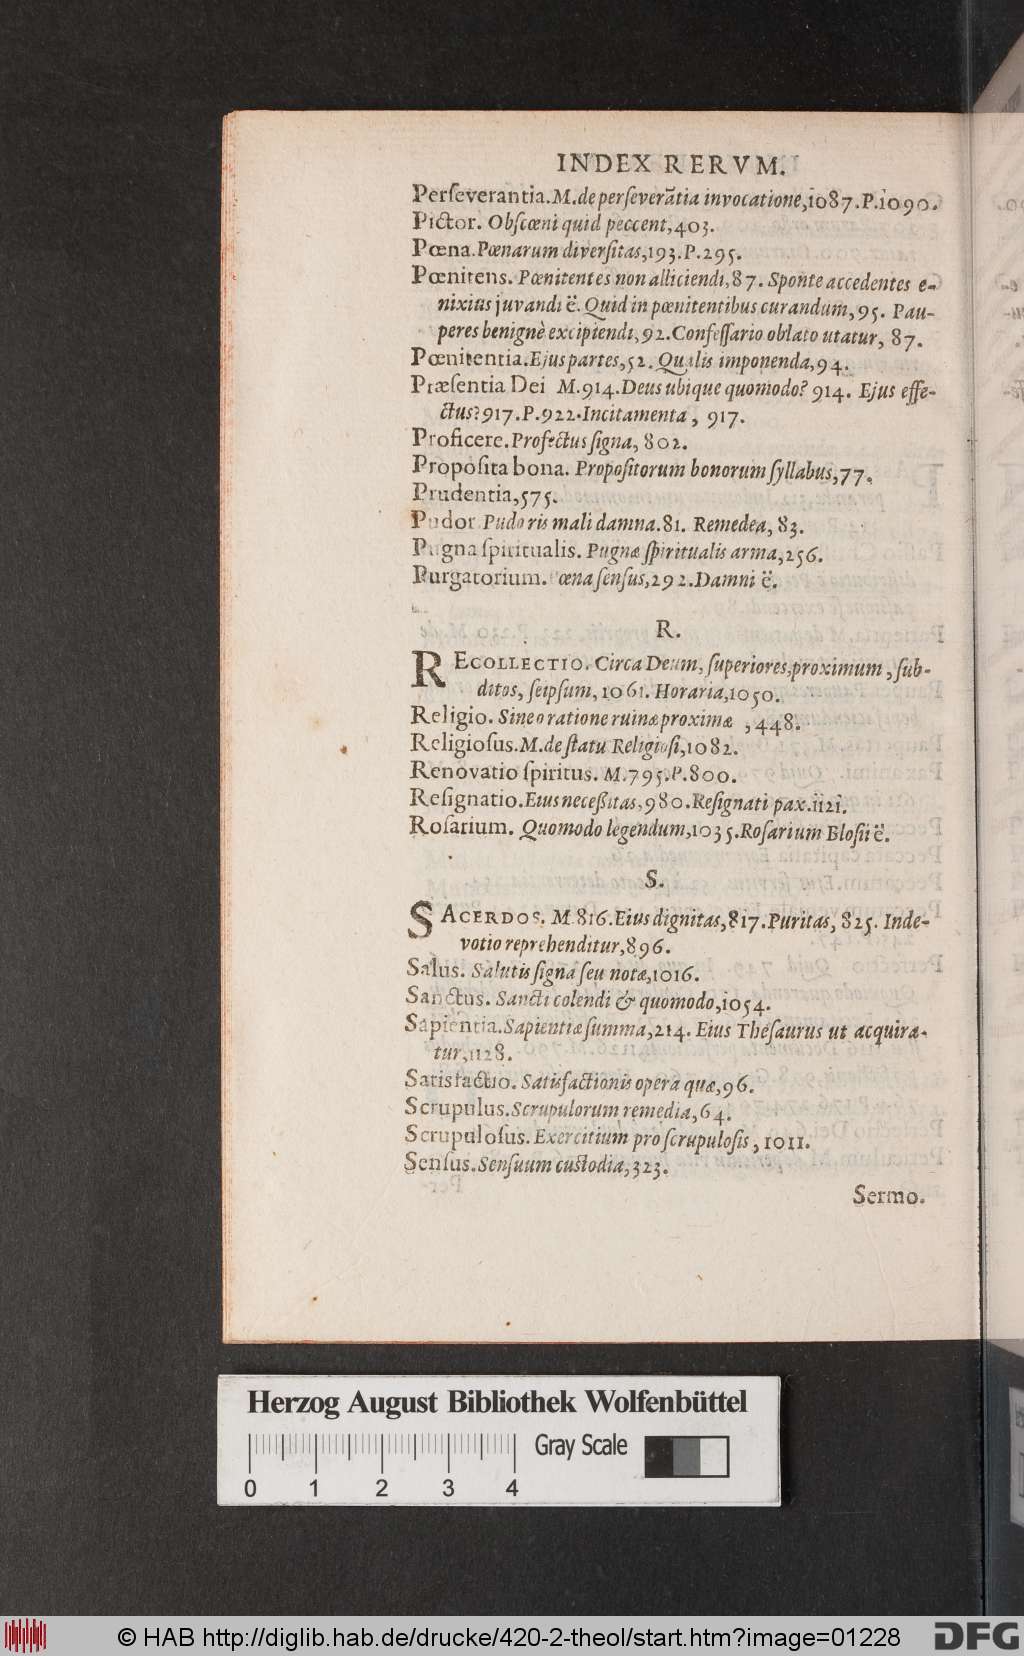 INDEX RERVM.
Perſeverantia. M. de perſeverātia invocatione, 1087. P. 1090.
Pictor. Obſcœni quid peccent, 403.
Pœna. Pœnarum diverſitas, 193. P. 295.
Pœnitens. Pœnitentes non alliciendi, 87. Sponte accedentes e-
nixius juvandi ë. Quid in pœnitentibus curandum, 95. Pau-
peres benignè excipiendi, 92. Confeſſario oblato utatur, 87.
Pœnitentia. Ejus partes, 52. Qualis imponenda, 94.
Præſentia Dei M. 914. Deus ubique quomodo? 914. Ejus effe-
ctus? 917. P. 922. Incitamenta, 917.
Proficere. Profectus ſigna, 802.
Propoſita bona. Propoſitorum bonorum ſyllabus, 77.
Prudentia, 575.
Pudor Pudoris mali damna. 81. Remedea, 83.
Pugna ſpiritualis. Pugnæ ſpiritualis arma, 256.
Purgatorium. œna ſenſus, 292. Damni ë.
R.
RECOLLECTIO. Circa Deum, ſuperiores, proximum, ſub-
ditos, ſeipſum, 1061. Horaria, 1050.
Religio. Sine oratione ruinæ proximæ, 448.
Religioſus. M. de ſtatu Religioſi, 1082.
Renovatio ſpiritus. M. 795. P. 800.
Reſignatio. Eius neceſſitas, 980. Reſignati pax. 1121.
Roſarium. Quomodo legendum, 1035. Roſarium Bloſii ë.
S.
SACERDOS. M 816. Eius dignitas, 817. Puritas, 825. Inde-
votio reprehenditur, 896.
Salus. Salutis ſigna ſeu notæ, 1016.
Sanctus. Sancti colendi & quomodo, 1054.
Sapientia. Sapientiæ ſumma, 214. Eius Theſaurus ut acquiræ-
tur, 1128.
Satisfactio. Satisfactionis opera quæ, 96.
Scrupulus. Scrupulorum remedia, 64.
Scrupuloſus. Exercitium pro ſcrupuloſis, 1011.
Senſus. Senſuum cuſtodia, 323.
Sermo.
Herzog August Bibliothek Wolfenbüttel
Gray Scale
0 1 2 3 4
© HAB http://diglib.hab.de/drucke/420-2-theol/start.htm?image=01228
DFG